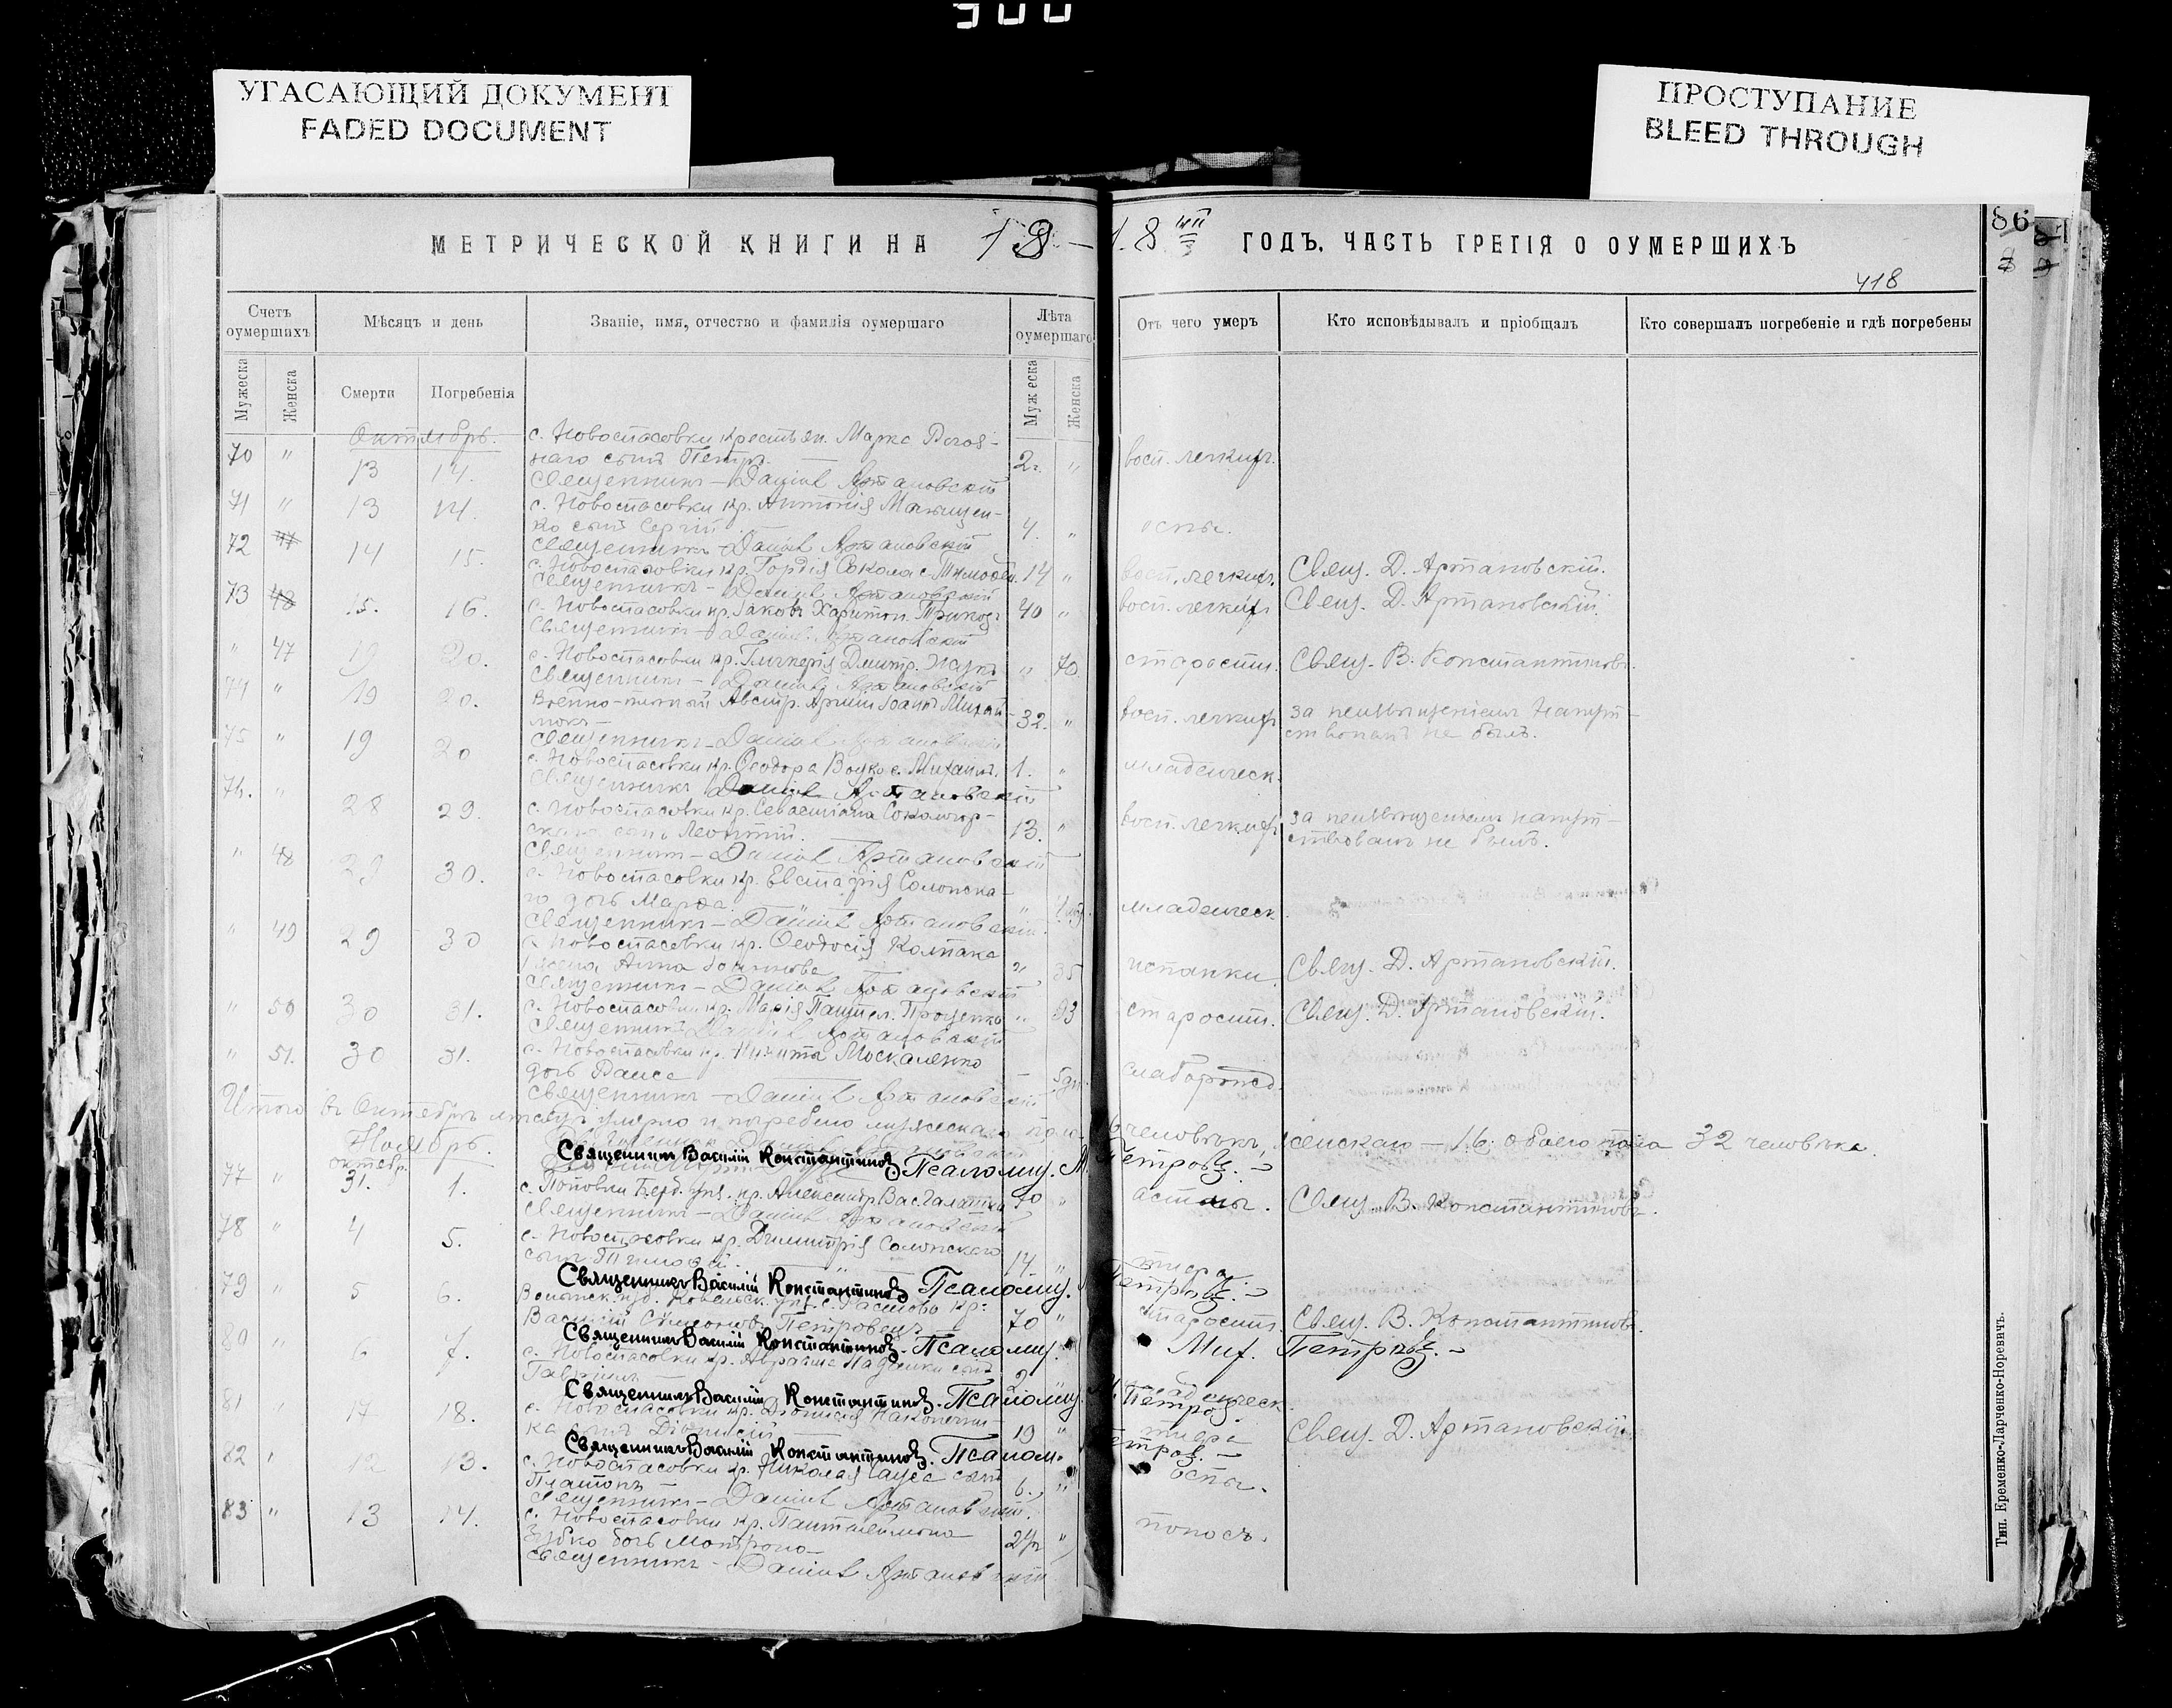 900
УГАСАЮЩИЙ ДОКУМЕНТ
FADED DOCUMENT
ПРОСТУПАНИЕ
BLEED THROUGH
86
МЕТРИЧЕСКОЙ КНИГИ НА 18
18 ГОДЪ. ЧАСТЬ ТРЕТІЯ О ОУМЕРШИХЪ
418
Счетъ оумершихъ
Мѣсяцъ и день
Званіе, имя, отчество и фамилія оумершаго
Лѣта оумершаго
Отъ чего умеръ
Кто исповѣдывалъ и пріобщалъ
Кто совершалъ погребеніе и гдѣ погребены
Мужеска
Женска
Смерти
Погребенія
Мужеска
Женска
Октябрь.
70 " 13 14. с. Новоспасовки крестьян. Марка
наго сынъ Петръ. 2г. " восп. легкихъ.
Священникъ – Даніилъ Артановскій
71 " 13 14. с. Новоспасовки кр. Антонія
ко сынъ Сергій 4. " оспы.
Священникъ Даніилъ Артановскій
72 14 15. с. Новоспасовки кр. Гордія Сокола с. Тимофей. 14 " восп. легкихъ. Свящ. Д. Артановскій.
Священникъ – Даніилъ Артановскій
73 15. 16. с. Новоспасовки кр. Іаковъ Харитон. 40 " восп. легкихъ Свящ. Д. Артановскій.
Священникъ – Даніилъ Артановскій
" 47 19 20. с. Новоспасовки кр. Гликерія Дмитр. " 70. старости. Свящ. В. Константиновъ.
Священникъ – Даніилъ Артановскій
74 " 19 20. Военно-плѣнный Австр. Арміи Іоаннъ
32. " восп. легкихъ за неизвѣщеніемъ напут-
ствованъ не былъ.
Священникъ – Даніилъ Артановскій
75 " 19 20 с. Новоспасовки кр. Ѳеодора с. Михаилъ. 1. " младенческ.
Священникъ Даніилъ Артановскій
76. " 28 29. с. Новоспасовки кр. Севастіана
сынъ Леонтій. 13. " восп. легкихъ за неизвѣщеніемъ напут-
ствованъ не былъ.
Священникъ – Даніилъ Артановскій
" 48 29 30. с. Новоспасовки кр. Евстафія Солонска-
го дочь Марѳа. " младенческ.
Священникъ – Даніилъ Артановскій
" 49 29 30 с. Новоспасовки кр. Ѳеодосія Колпака
жена Анна Іоаннова " 35 испанки. Свящ. Д. Артановскій.
Священникъ – Даніилъ Артановскій
" 50 30 31. с. Новоспасовки кр. Марія Пантел. Проценко " 93 старости. Свящ. Д. Артановскій.
Священникъ Даніилъ Артановскій
" 51. 30 31. с. Новоспасовки кр. Никита Москаленко
дочь Раиса – 5дн. слаборожд.
Священникъ – Даніилъ Артановскій
Итого въ Октябрѣ мѣсяцѣ умерло и погребено мужескаго пола 16 человѣкъ, женскаго – 16. обоего пола 32 человѣка.
Ноябрь.
Священникъ Василій Константиновъ. Псаломщ. М. Петровъ.
77 " октябр. 31. 1. с. Поповки Берд. уѣз. кр. Александръ Вас. 70 " астмы. Свящ. В. Константиновъ.
Священникъ – Даніилъ Артановскій
78 " 4 5. с. Новоспасовки кр. Димитрія Солонскаго
сынъ Тимоѳей. 14 " тифа.
Священникъ Василій Константиновъ Псаломщ. М. Петровъ.
79 " 5 6. Волынск. губ. Ковельск. уѣз. с. кр.
Василій Петровецъ 70 " старости. Свящ. В. Константиновъ.
Священникъ Василій Константиновъ. Псаломщ. Мих. Петровъ.
80 " 6 7. с. Новоспасовки кр. Авраама сынъ
Гавріилъ 2 младенческ.
Священникъ Василій Константиновъ. Псаломщ. М. Петровъ.
81 " 17 18. с. Новоспасовки кр. Діонисія Наконечни-
ка сынъ Діонисій 19 " тифа Свящ. Д. Артановскій
Священникъ Василій Константиновъ. Псалом. Петровъ.
82 " 12 13. с. Новоспасовки кр. Николая сынъ
Платонъ 6. " оспы.
Священникъ – Даніилъ Артановскій.
83 " 13 14. с. Новоспасовки кр. Пантелеймона
Зубко дочь Матрона " поносъ.
Священникъ – Даніилъ Артановскій
Тип. Еременко-Ларченко-Норевичъ.